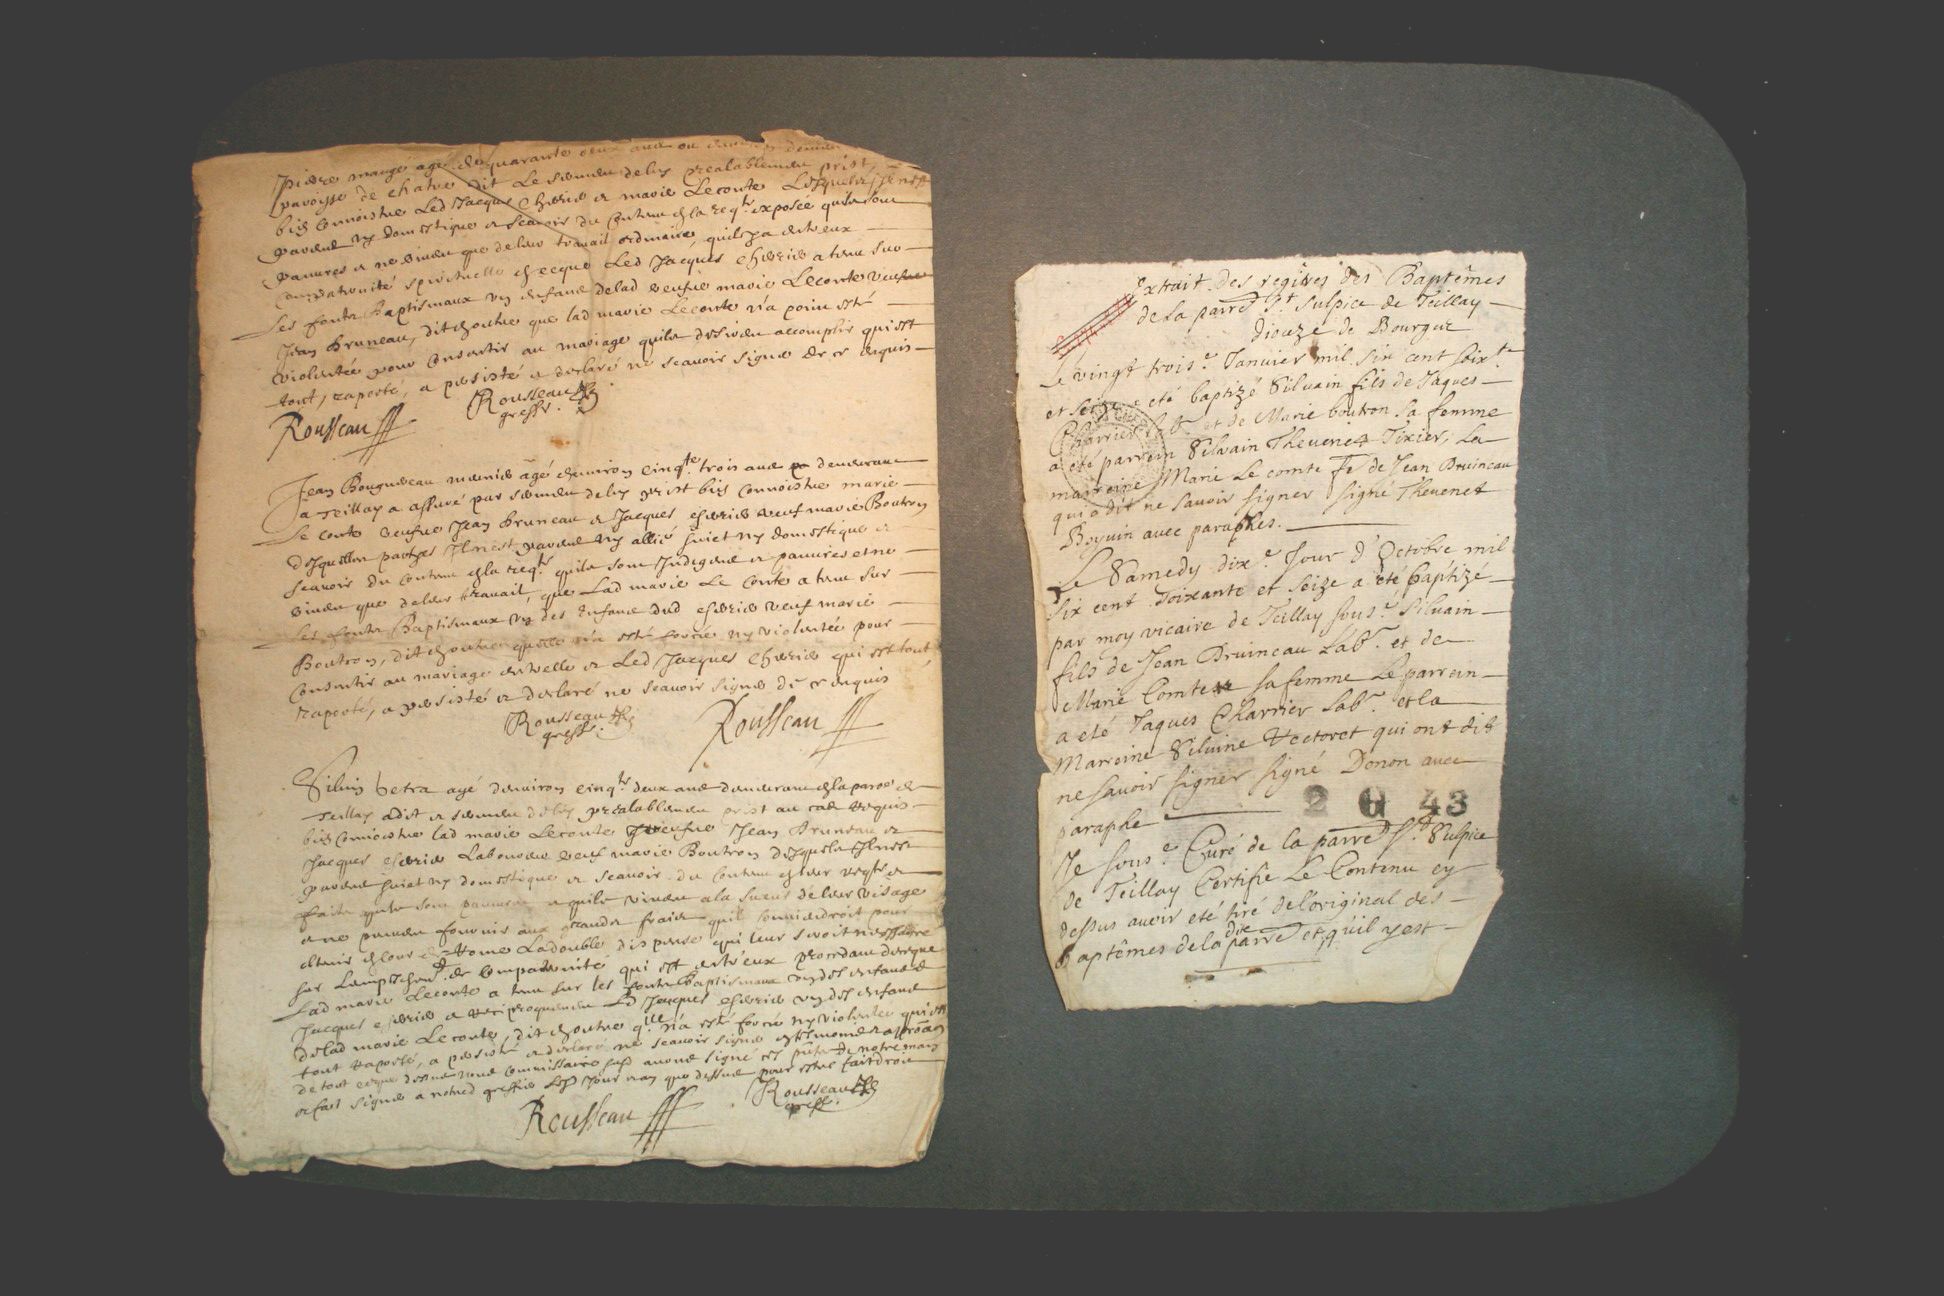 Pierre maugé agé de quarante deux ans ou environ demeu
paroisse de chatre dit Le sermen deluy prealablemen prist
bien connoistre Led Jacques cherié et marie Leconte Lesquels Il n'est
paren ny domestique et scavoir du contenu en la reqte exposée quils sont
pauvres et ne viven que de leur travail ordinaire, quil y a entreux
compaternité spirituelle en ce que Led Jacques cherié a tenu sur
Les fonts Baptismaux un enfant de lad veufve marie Leconte veufve
Jean bruneau, dit en outre que lad marie Leconte n'a poin esté
violentée pour consentir au mariage quils desiren accomplir qui est
tout, raporté, a persisté et declaré ne scavoir signer de ce enquis
Rousseau Rousseau
greffr.
Jean Bougnereau meunié agé denviron cinqte trois ans demeurant
a Teillay a assuré par sermen deluy prist bien connoistre marie
Le conte veufve Jean bruneau et Jacques cherié veuf marie Boutron
desquelles partyes Il n'est paren ny allié sujet ny domestique et
scavoir du contenu en la reqte quils sont Indigens et pauvres et ne
viven que de leur travail, que Lad marie Le Conte a tenu sur
Les fonts Baptismaux un des enfans dud cherié veuf marie
Boutron, dit en outre quelle n'a esté forcée ny violentée pour
consentir au mariage entrelle et Led Jacques cherié qui est tout
raporté, a persisté et declaré ne scavoir signer de ce enquis
Rousseau Rousseau
greffr.
Silvin betra agé denviron cinqte deux ans demeurant en la paroe de
Teillay a dit et sermen deluy prealablemen prist au cas requis
bien connoistre lad marie Leconte veufve Jean bruneau et
Jacques cherié Laboureur veuf marie Boutron desquels Il n'est
paren sujet ny domestique et scavoir du contenu en leur reqte et
faits quils sont pauvres et quils viven a la sueur de leur visage
et ne peuven fournir aux grands frais quil conviendroit pour
obtenir en cour de Rome La double dispense qui leur seroit necessaire
sur Lempeschent de compaternité qui est entreux procedant de ce que
Lad marie Leconte a tenu sur les fonts Baptismaux un des enfans de
Jacques cherié et reciproquemen Led Jacques cherié un des enfans
de lad marie Leconte, dit en outre qlle n'a esté forcée ny violentée qui est
tout raporté, a persisté et declaré ne scavoir signer
de tout ce que dessus nous commissaire susd avons signé ces pntes de notre main
et fait signer a notred greffier Lesd Jour et an que dessus pour estre fait droit
Rousseau Rousseau
greffr.
Extrait des regitres des Baptêmes
de la parre St. Sulpice de Teillay
diouze de Bourgue
Le vingt trois.e Janvier mil six cent soixte
et seize a eté baptizé Silvain fils de Jaques
Charrier lab.r et de Marie boutron sa femme
a été parrein Silvain Thevenet Tixier, La
marreine Marie Le comte fe de Jean Bruineau
qui a dit ne savoir signer signé Thevenet
Boyuin avec paraphes.
Le Samedy dix.e Jour d'Octobre mil
six cent soixante et seize a été baptizé
par moy vicaire de Teillay sous.é Silvain
fils de Jean Bruineau Lab.r et de
Marie Comte sa femme Le parrein
a eté Jaques Charrier lab.r et la
Marreine Silvine Hectoret qui ont dit
ne savoir signer signé Dénon avec
paraphe
2 G 43
Je sous.é Curé de la parre St. Sulpice
de Teillay Certifie Le Contenu cy
dessus avoir eté tiré de l'original des
baptêmes de la dite parre et qu'il y est